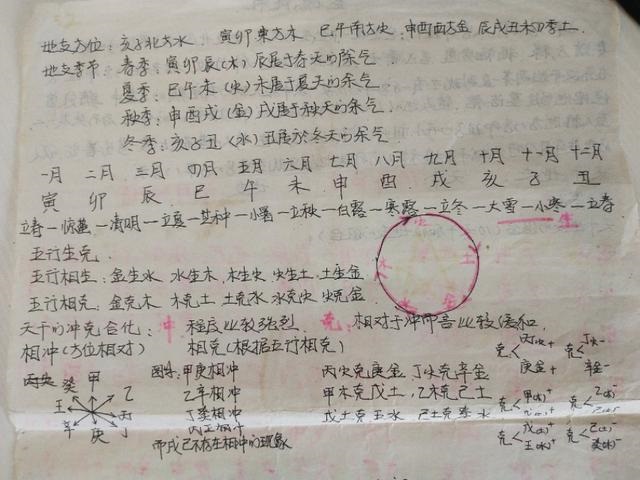 地支方位：亥子北方水、寅卯东方木、巳午南方火、申酉西方金 辰戌丑未四季土.
地支季节 春季：寅卯辰(木) 辰属于春天的除气
夏季：巳午未(火) 未属于夏天的余气
秋季：申酉戌(金) 戌属于秋天的余气
冬季：亥子丑(水) 丑属於冬天的余气
一月 二月 三月 四月 五月 六月 七月 八月 九月 十月 十一月 十二月
寅 卯 辰 巳 午 未 申 酉 戌 亥 子 丑
立春一惊蛰一清明一立夏一芒种一小暑一立秋一白露一寒露一立冬一大雪一小寒一立春
五行生克.
五行相生：金生水 水生木 木生火 火生土 土生金
五行相克：金克木 木克土 土克水 水克火 火克金
生
火
土
金
水
木
天干的冲克合化： 冲 程度比较强烈 克：相对于冲而言比较缓和.
相冲(方位相对) 相克(根据五行相克)
丙火 图解：甲庚相冲 丙火克庚金 丁火克辛金
乙辛相冲 甲木克戊土 乙木克己土
丁癸相冲 戊土克壬水 己土克癸水
丙壬相冲
而戊己不存在相冲的现象
甲
癸 乙
壬 丙
辛 丁
庚
克<丙火+ 庚金+
克<丁火- 辛金-
克<甲(木)+
克<乙(木)-
克<戊(土)+ 壬(水)+
克<己(土)- 癸(水)-